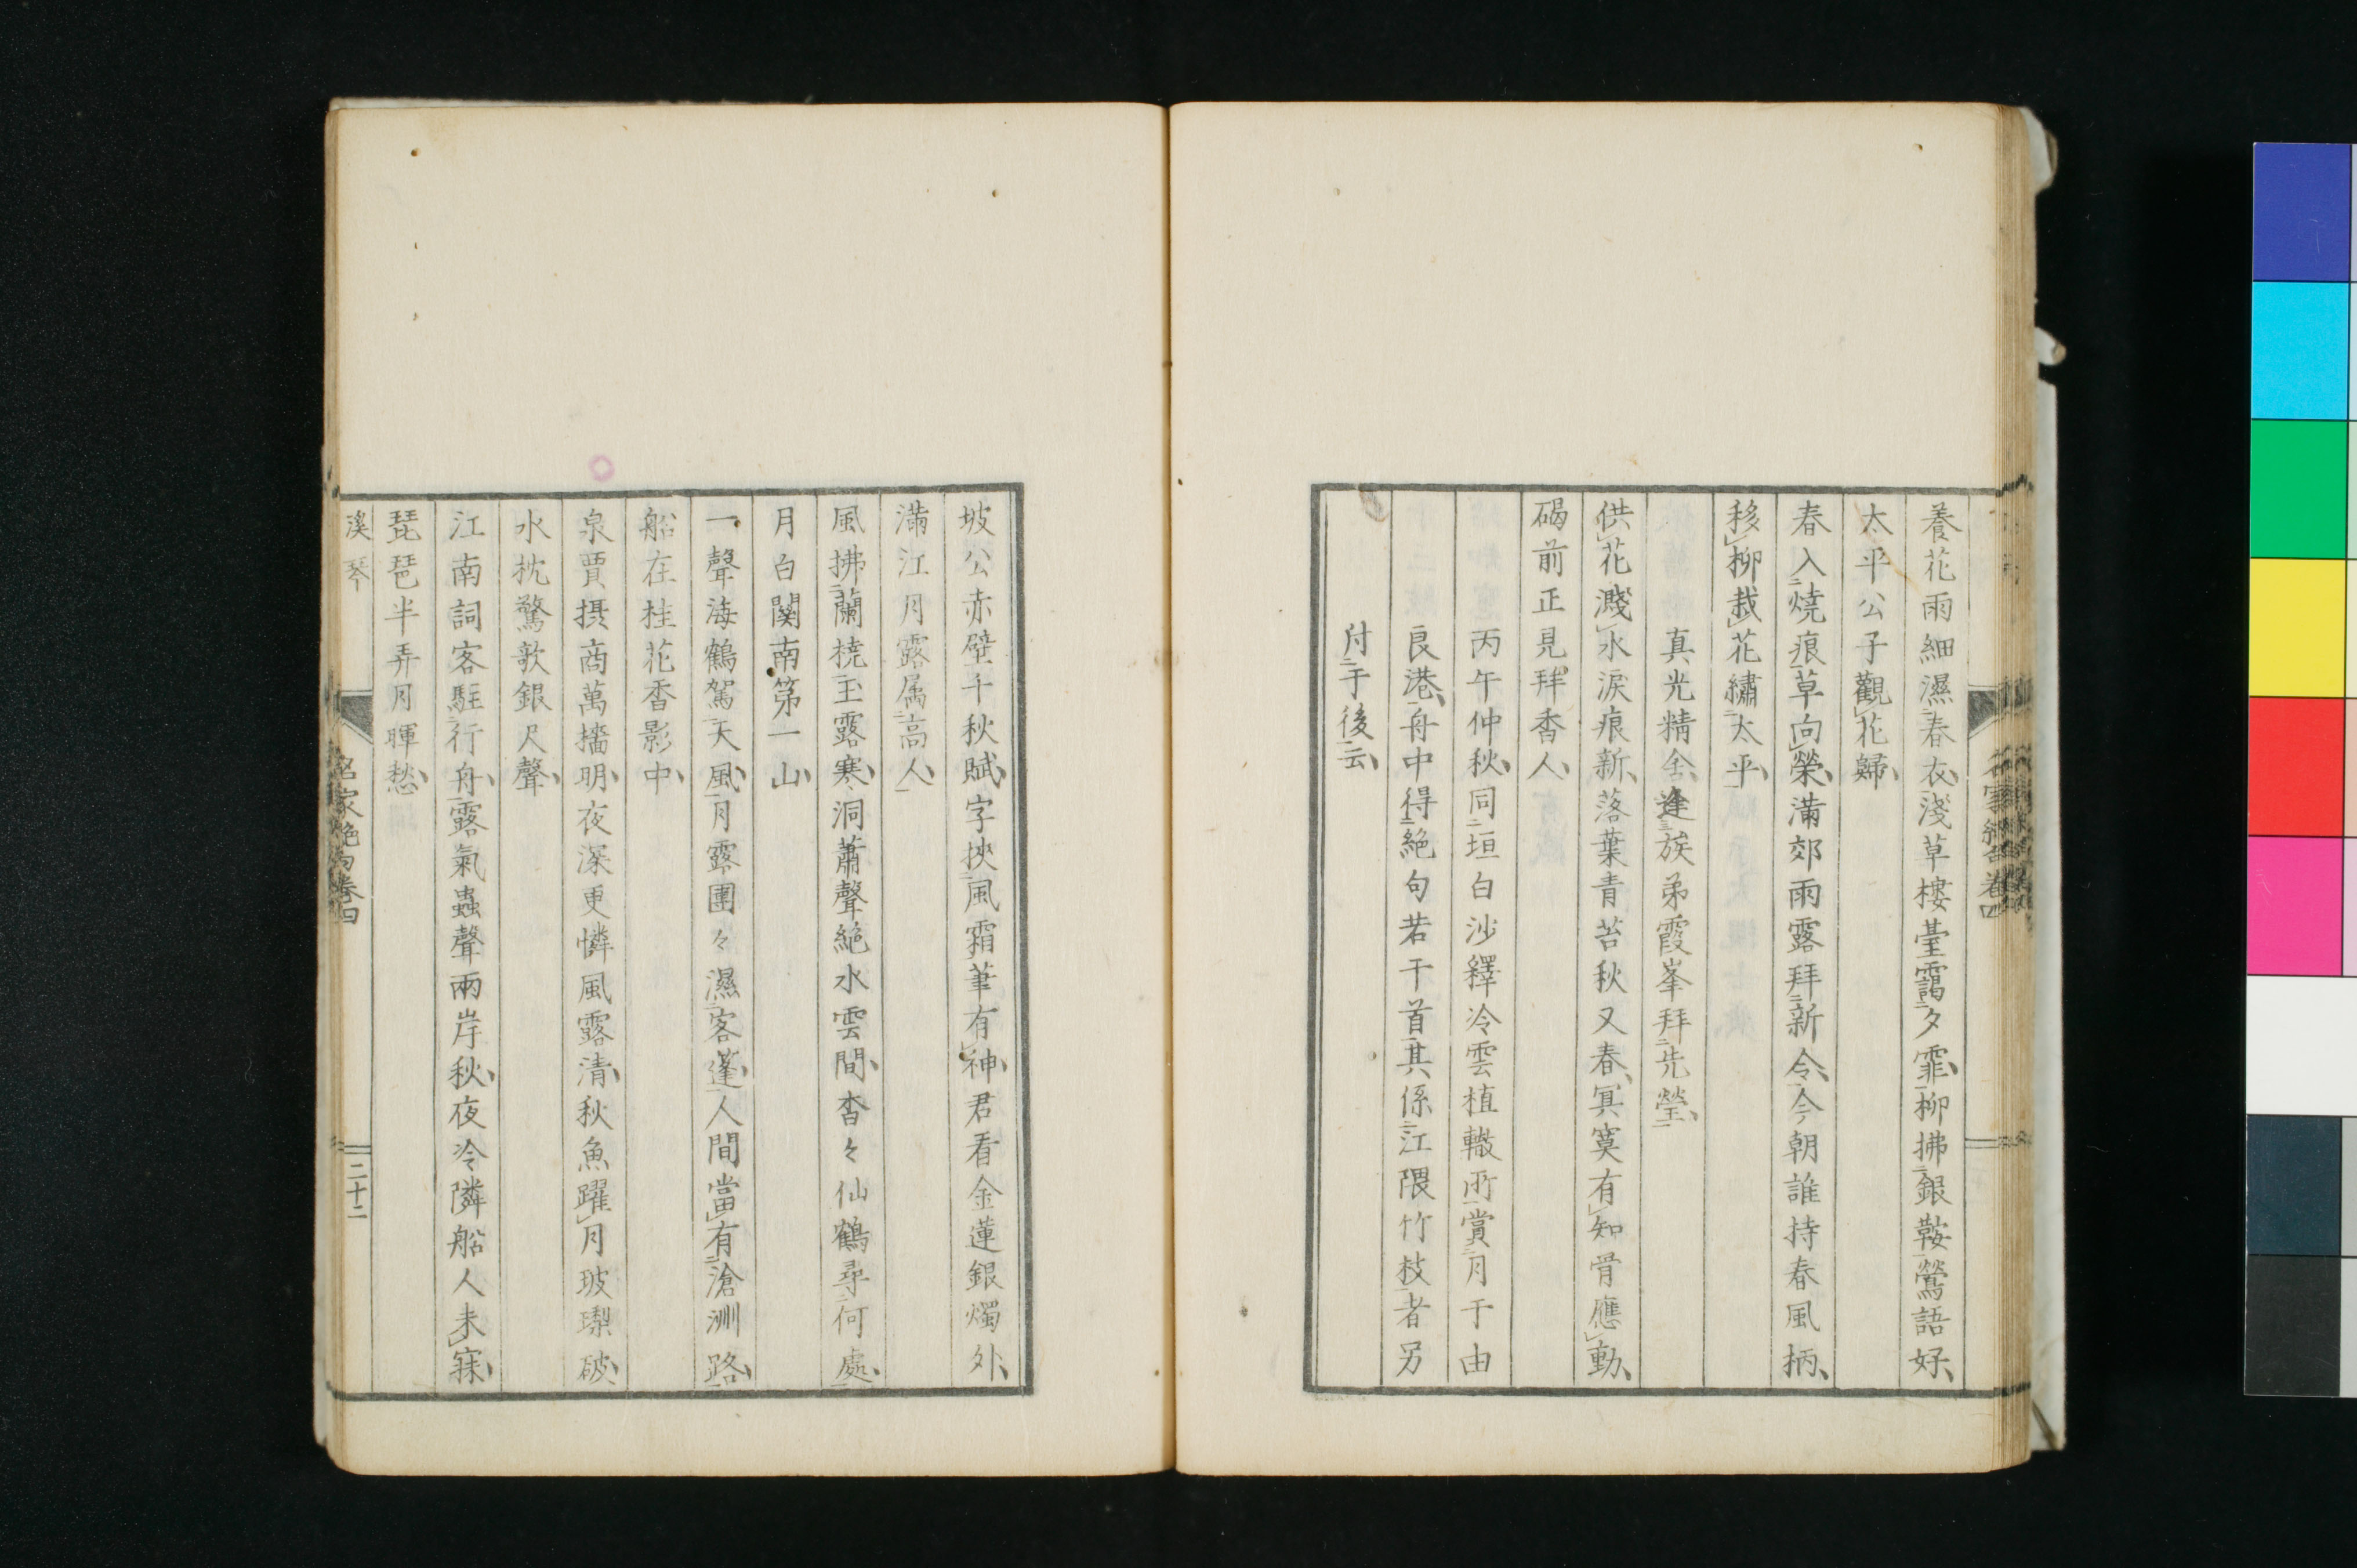 養花雨細濕春衣淺草樓臺靄夕霏柳拂銀鞍鶯語好
太平公子觀花歸
春入燒痕草向榮滿郊雨露拜新令今朝誰持春風柄
移柳栽花繡太平
真光精舍逢族弟霞峯拜先塋
供花濺水淚痕新落葉青苔秋又春冥寞有知骨應動
碣前正見拜香人
丙午仲秋同垣白沙繹冷雲植轍所賞月于由
良港舟中得絶句若干首其係江隈竹枝者另
付于後云
坡公赤壁千秋賦字挾風霜筆有神君看金蓮銀燭外
滿江月露属高人
風拂蘭橈玉露寒洞蕭聲絶水雲間杳々仙鶴尋何處
月白関南第一山
一聲海鶴駕天風月露團々濕客蓬人間當有滄洲路
船在桂花香影中
泉賈摂商萬檣明夜深更憐風露清秋魚躍月玻瓈破
水枕驚歌銀尺聲
江南詞客駐行舟露氣蟲聲兩岸秋夜冷隣船人未寐
琵琶半弄月暉愁
溪琴
名家絶句卷四
二十二